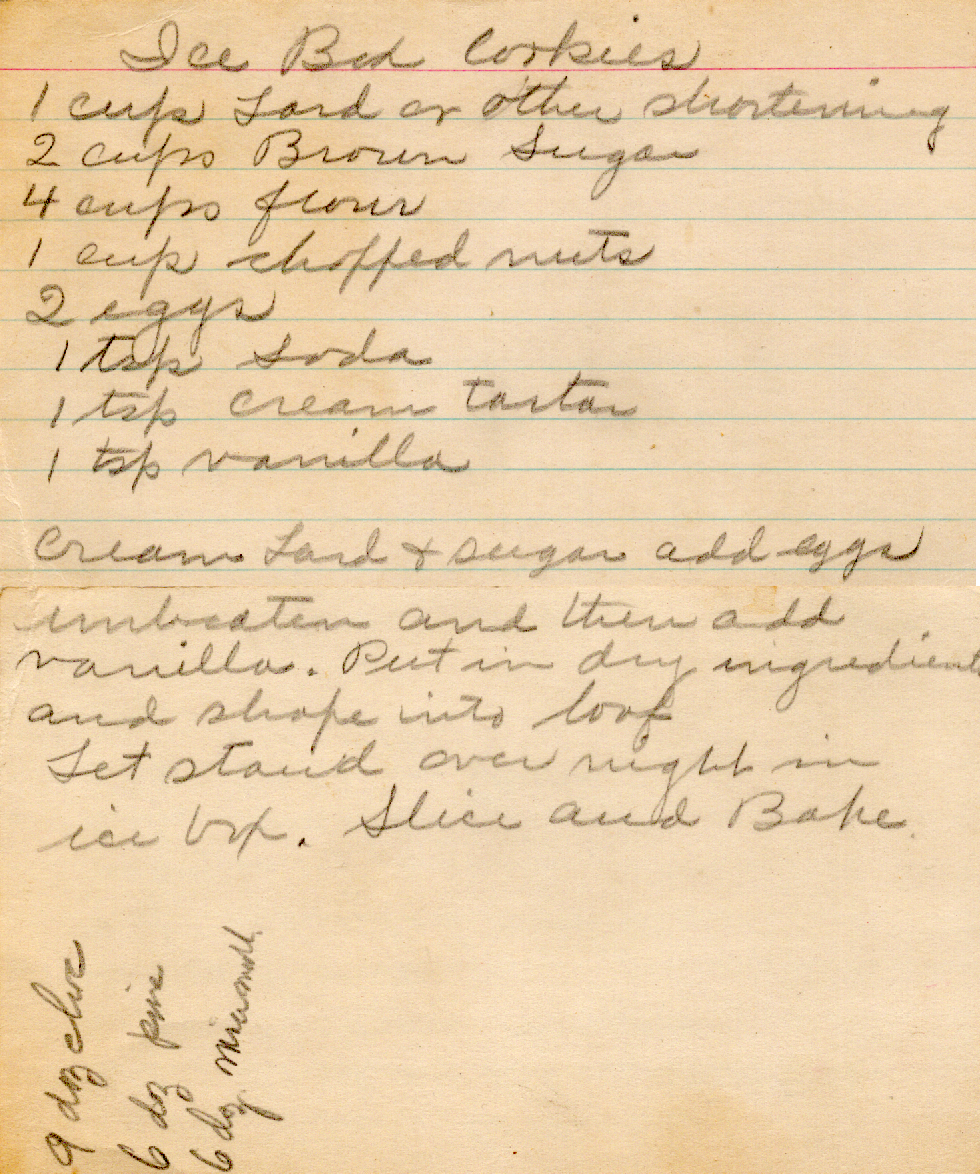 Ice Box Cookies
1 cup Lard or other shortening
2 cups Brown Sugar
4 cups flour
1 cup chopped nuts
2 eggs
1 tsp soda
1 tsp cream tartar
1 tsp vanilla
Cream Lard & sugar add eggs
unbeaten and then add
vanilla. Put in dry ingredients
and shape into loaf
Let stand over night in
ice box. Slice and Bake.
9 doz
6 doz
6 doz